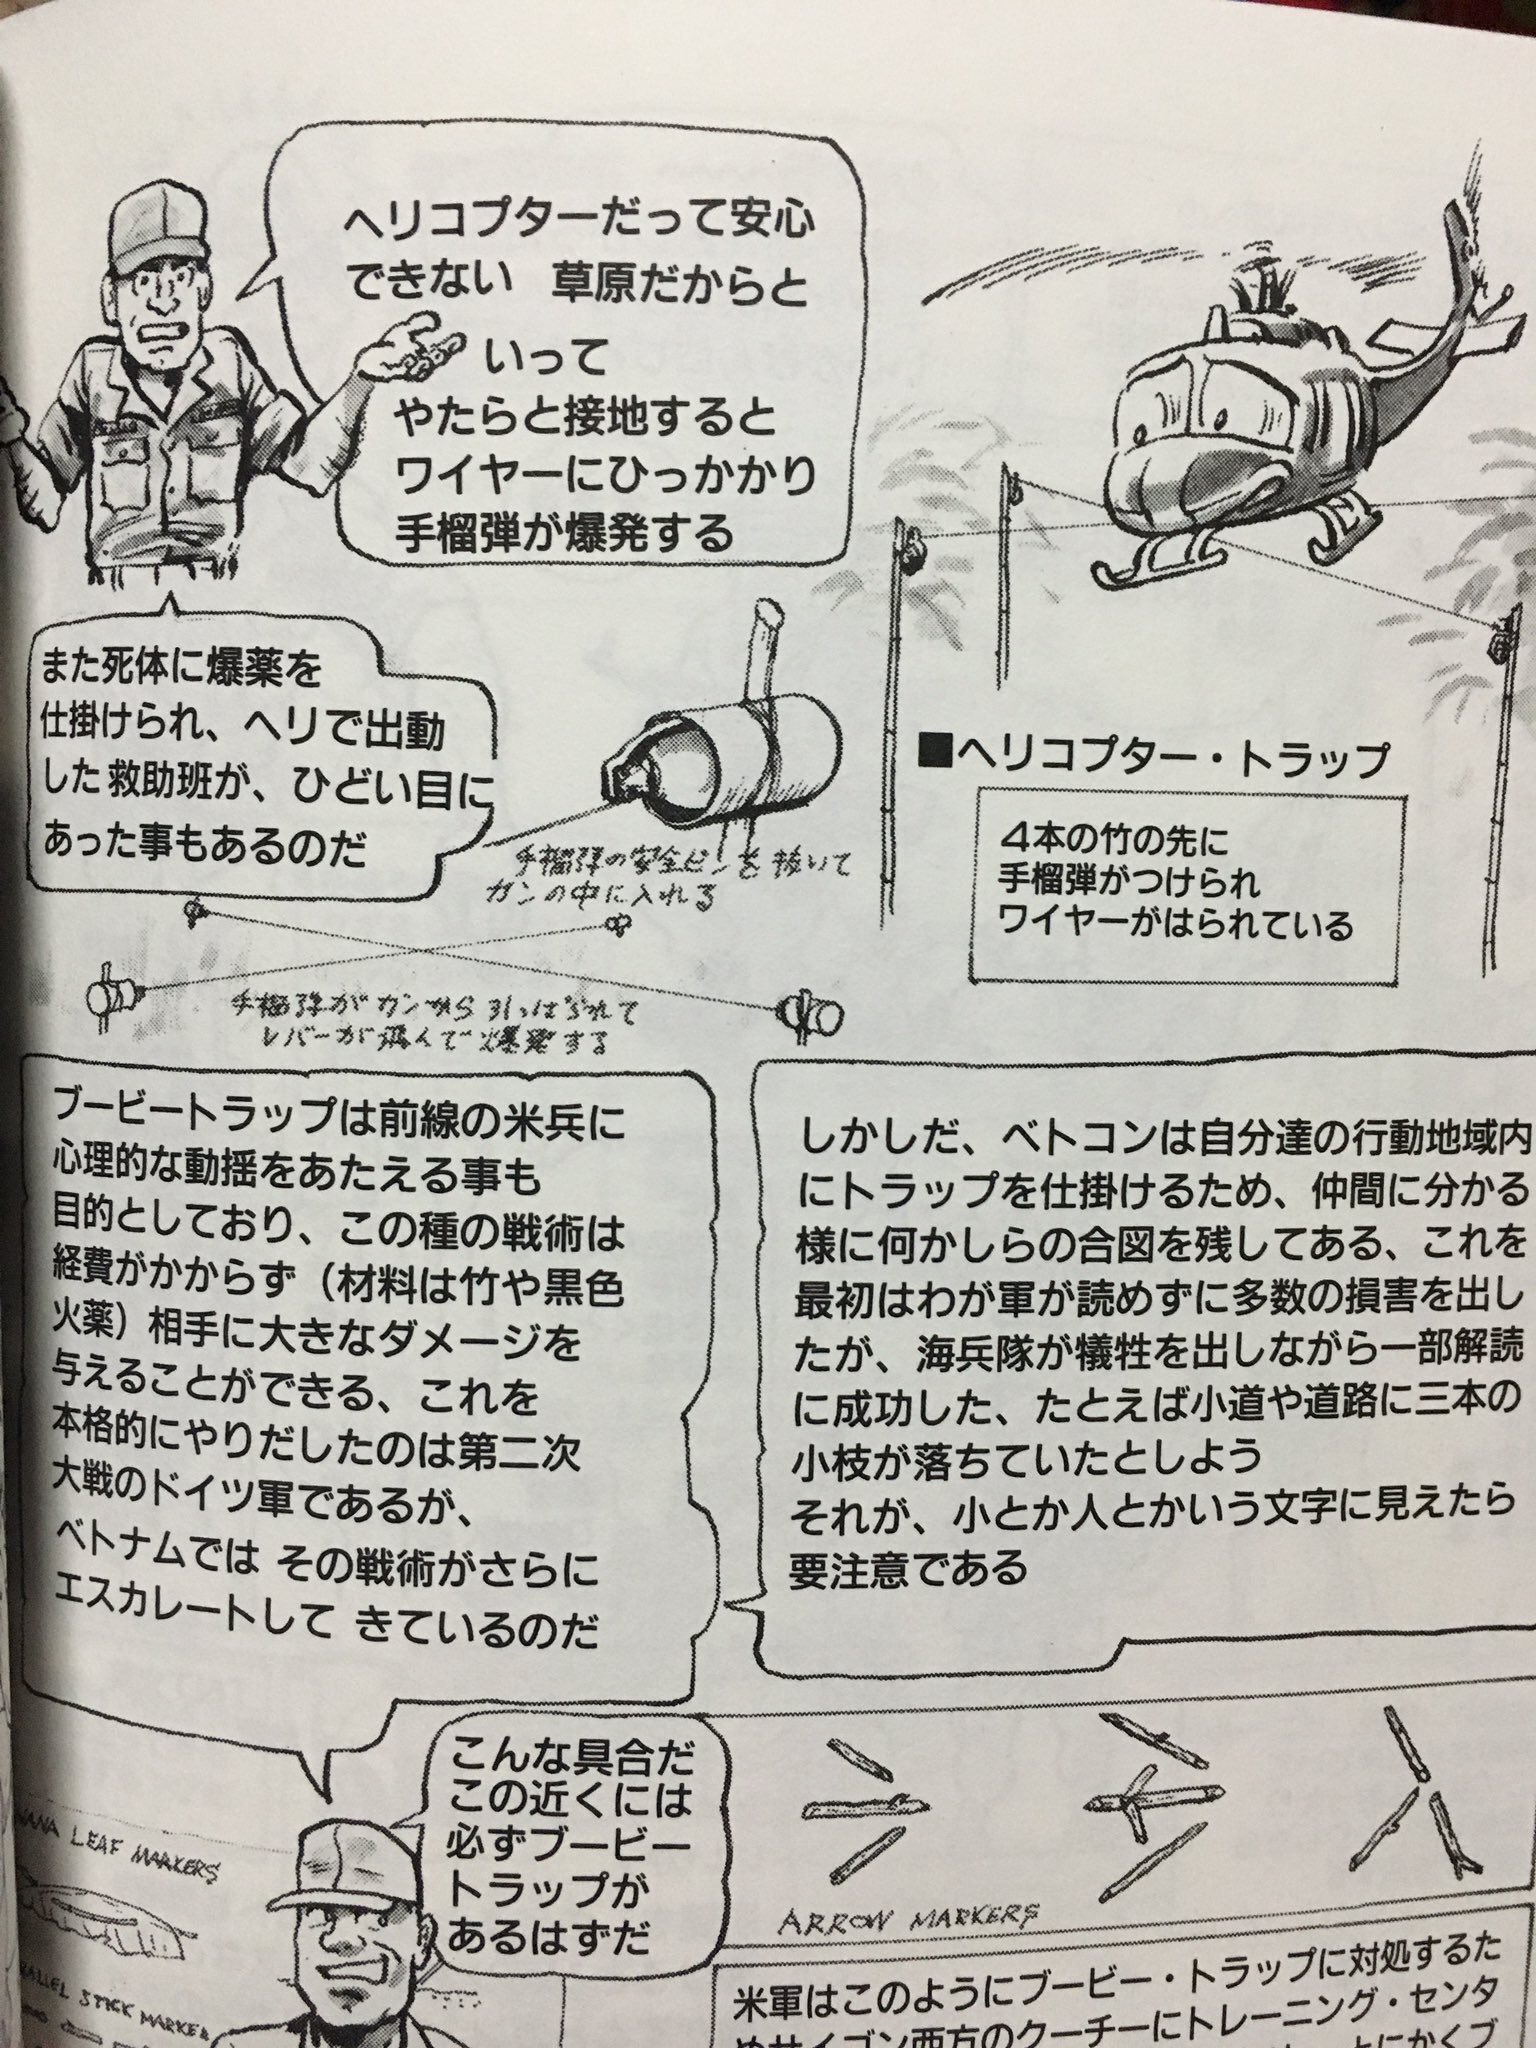 ヘリコプターだって安心
できない 草原だからと
いって
やたらと接地すると
ワイヤーにひっかかり
手榴弾が爆発する
また死体に爆薬を
仕掛けられ、ヘリで出動
した救助班が、ひどい目に
あった事もあるのだ
手榴弾の安全ピンを抜いて
カンの中に入れる
■ヘリコプター・トラップ
4本の竹の先に
手榴弾がつけられ
ワイヤーがはられている
手榴弾がカンから引っぱられて
レバーが飛んで爆発する
しかしだ、ベトコンは自分達の行動地域内
にトラップを仕掛けるため、仲間に分かる
様に何かしらの合図を残してある、これを
最初はわが軍が読めずに多数の損害を出し
たが、海兵隊が犠牲を出しながら一部解読
に成功した、たとえば小道や道路に三本の
小枝が落ちていたとしよう
それが、小とか人とかいう文字に見えたら
要注意である
ブービートラップは前線の米兵に
心理的な動揺をあたえる事も
目的としており、この種の戦術は
経費がかからず（材料は竹や黒色
火薬）相手に大きなダメージを
与えることができる、これを
本格的にやりだしたのは第二次
大戦のドイツ軍であるが、
ベトナムでは その戦術がさらに
エスカレートして きているのだ
こんな具合だ
この近くには
必ずブービー
トラップが
あるはずだ
ARROW MARKERS
LEAF MARKERS
STICK MARKER
米軍はこのようにブービー・トラップに対処するた
めサイゴン西方のクーチーにトレーニング・センタ